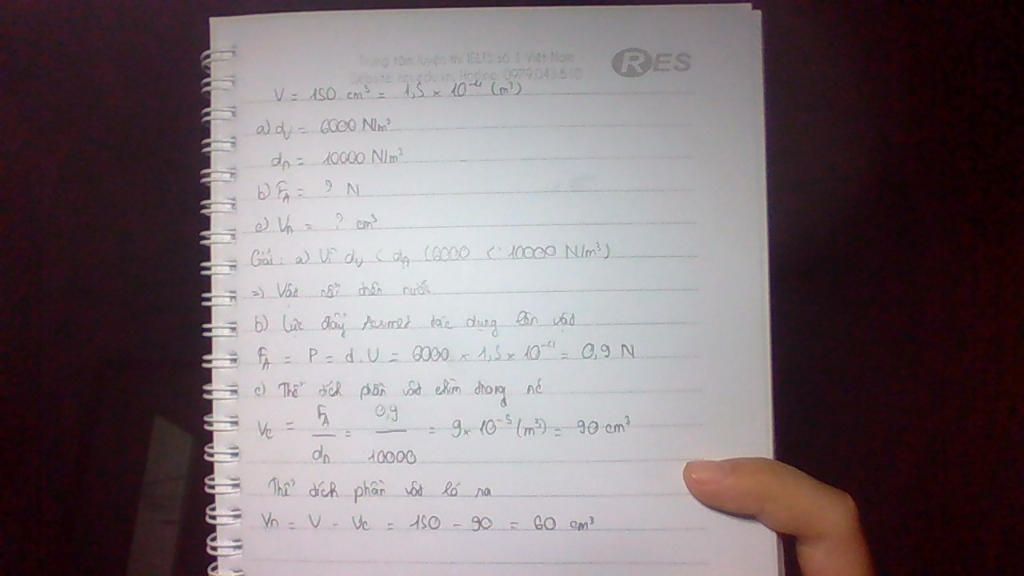 Trung tâm luyện thi IELTS số 1 Việt Nam
RES
V = 150 cm³ = 1,5 × 10⁻⁴ (m³)
a) dv = 6000 N/m³
dn = 10000 N/m³
b) FA = ? N
c) Vn = ? cm³
Giải: a) Vì dv < dn (6000 < 10000 N/m³)
=> Vật nổi trên nước
b) Lực đẩy Acsimet tác dụng lên vật
FA = P = d.V = 6000 × 1,5 × 10⁻⁴ = 0,9 N
c) Thể tích phần vật chìm trong nc
Vc = FA / dn = 0,9 / 10000 = 9 × 10⁻⁵ (m³) = 90 cm³
Thể tích phần vật ló ra
Vn = V - Vc = 150 - 90 = 60 cm³